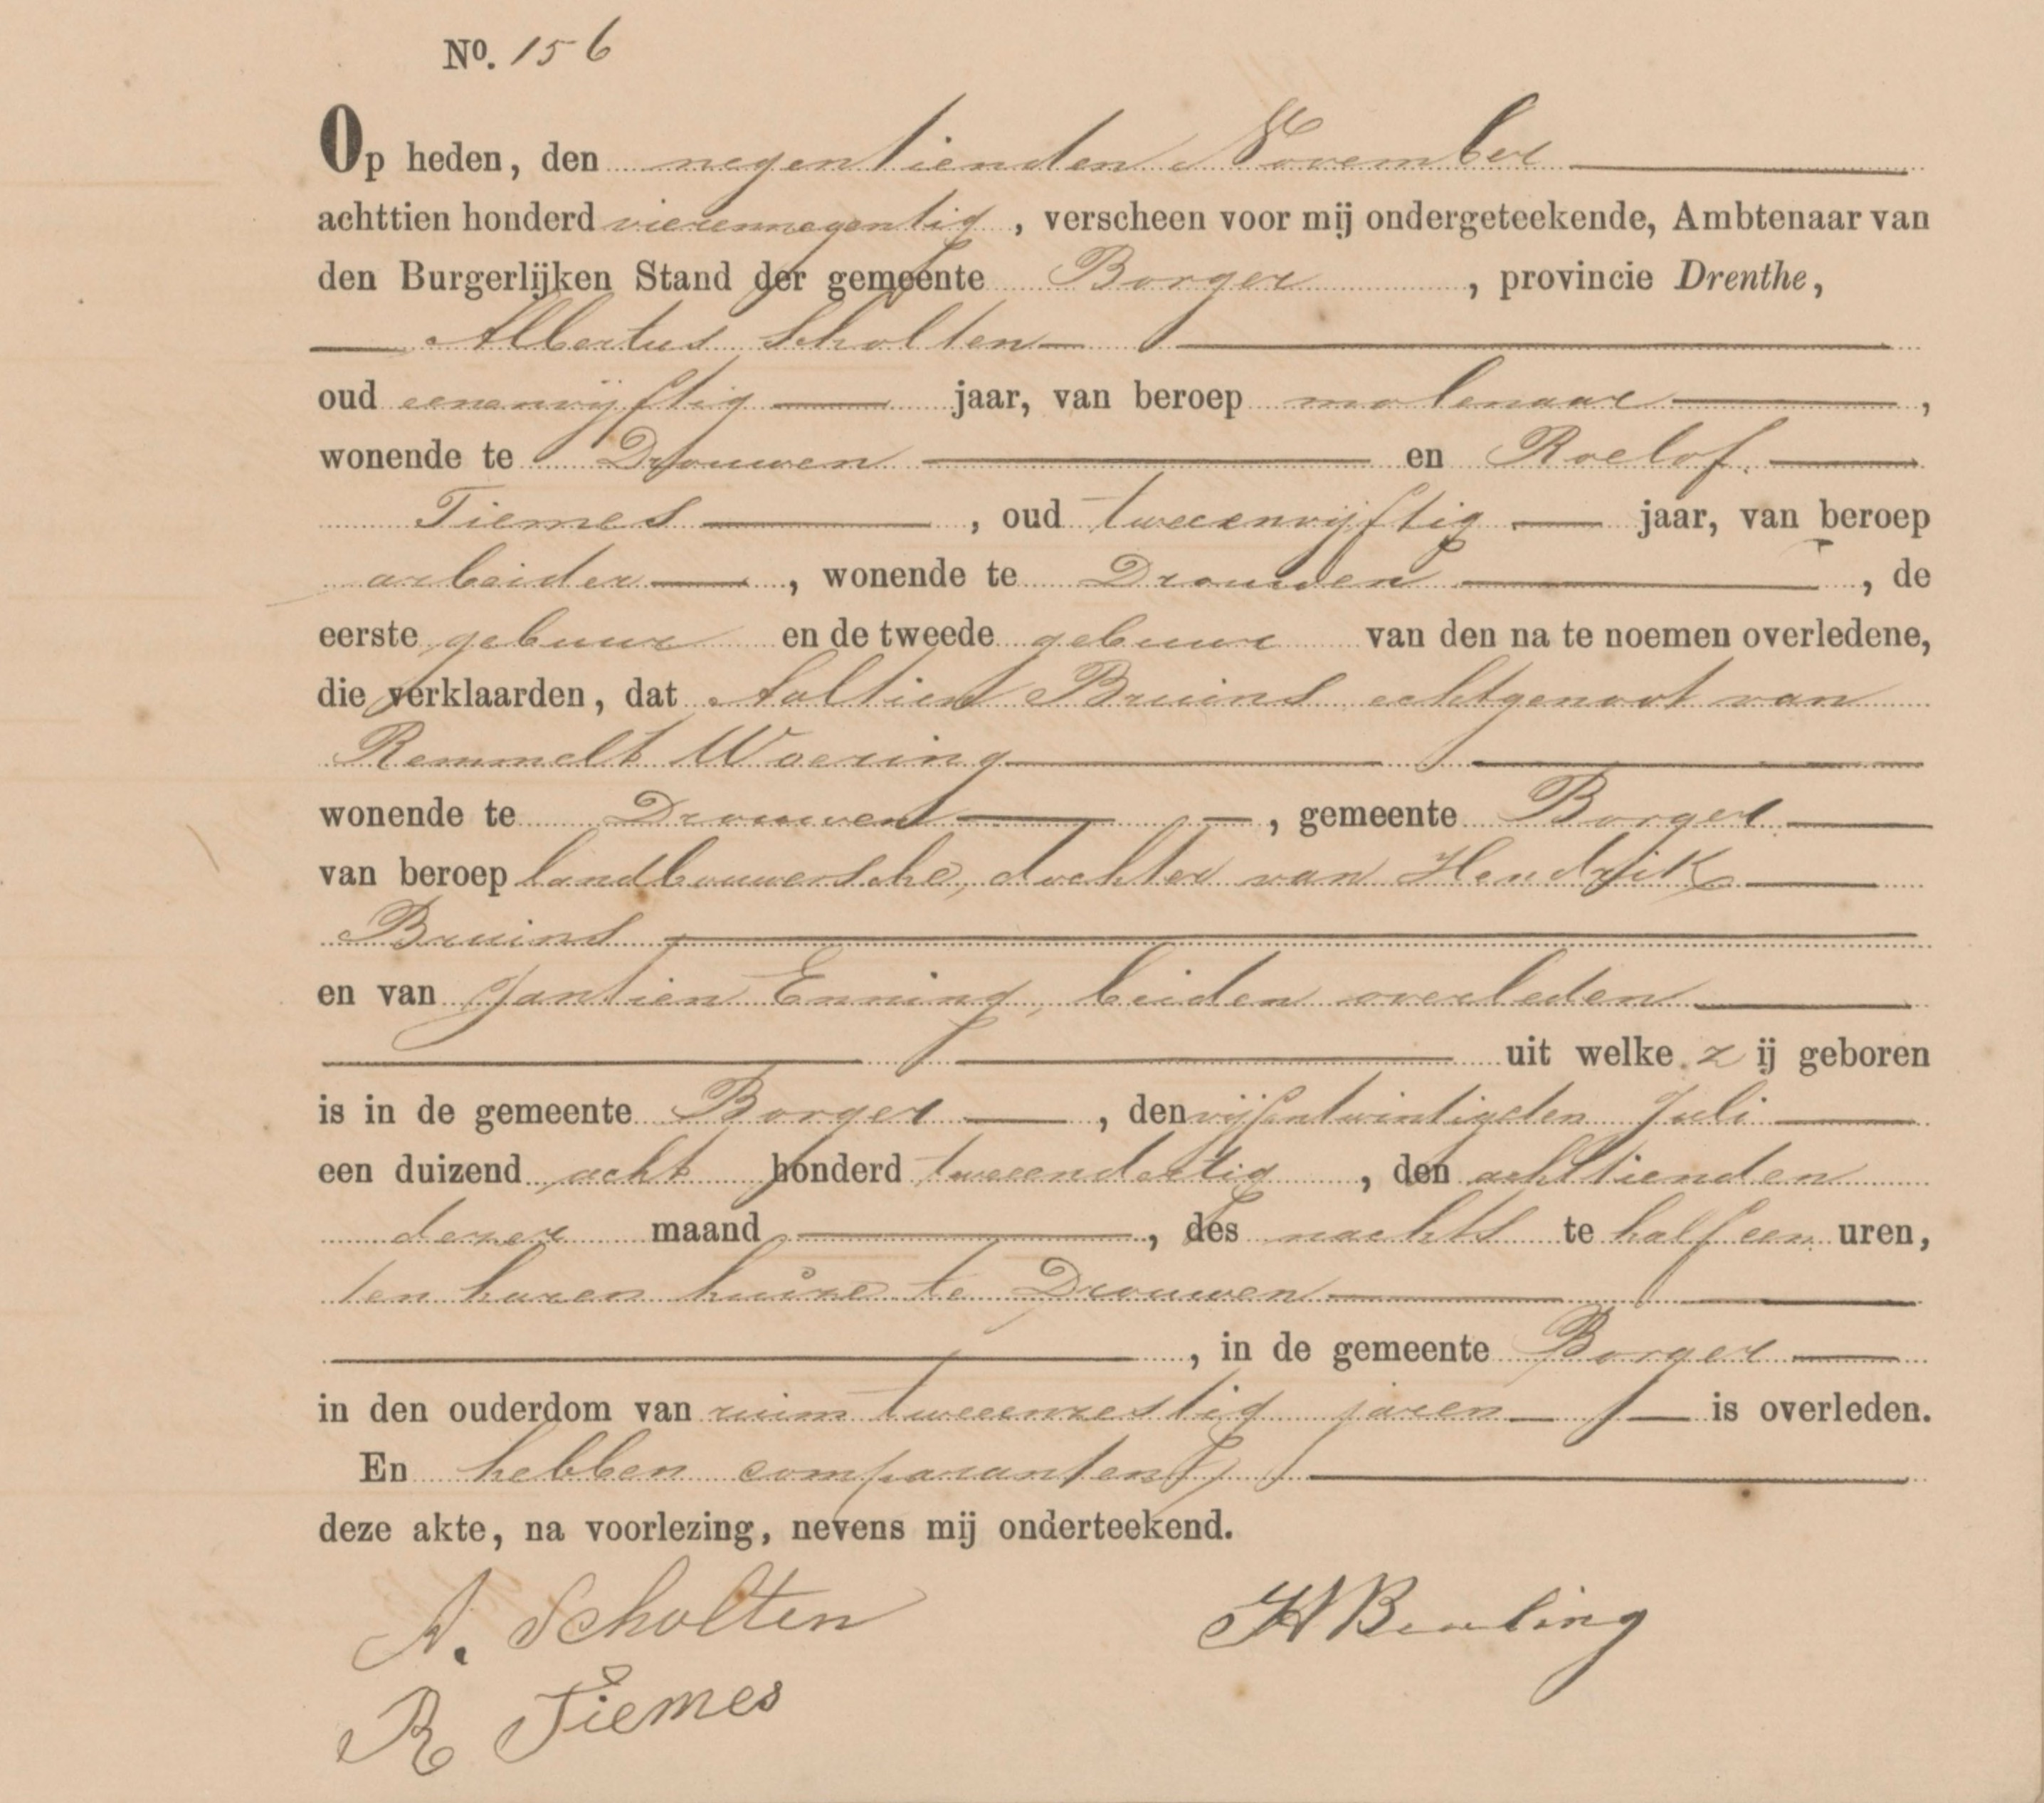 No. 156
Op heden, den negentienden November
achttien honderd vierennegentig, verscheen voor mij ondergeteekende, Ambtenaar van
den Burgerlijken Stand der gemeente Borger, provincie Drenthe,
Albertus Scholten
oud eenenvijftig jaar, van beroep molenaar,
wonende te Drouwen en Roelof
Tiemes, oud tweeenvijftig jaar, van beroep
arbeider, wonende te Drouwen, de
eerste gebuur en de tweede gebuur van den na te noemen overledene,
die verklaarden, dat Aaltien Bruins echtgenoot van
Remmelt Woering
wonende te Drouwen, gemeente Borger
van beroep landbouwersche, dochter van Hendrik
Bruins
en van Jantien Enning, beiden overleden
uit welke zij geboren
is in de gemeente Borger, den vijfentwintigsten Juli
een duizend acht honderd tweeendertig, den achttienden
dezer maand, des nachts te half een uren,
ten haren huize te Drouwen
, in de gemeente Borger
in den ouderdom van ruim tweeenzestig jaren is overleden.
En hebben comparanten
deze akte, na voorlezing, nevens mij onderteekend.
A. Scholten
R Tiemes